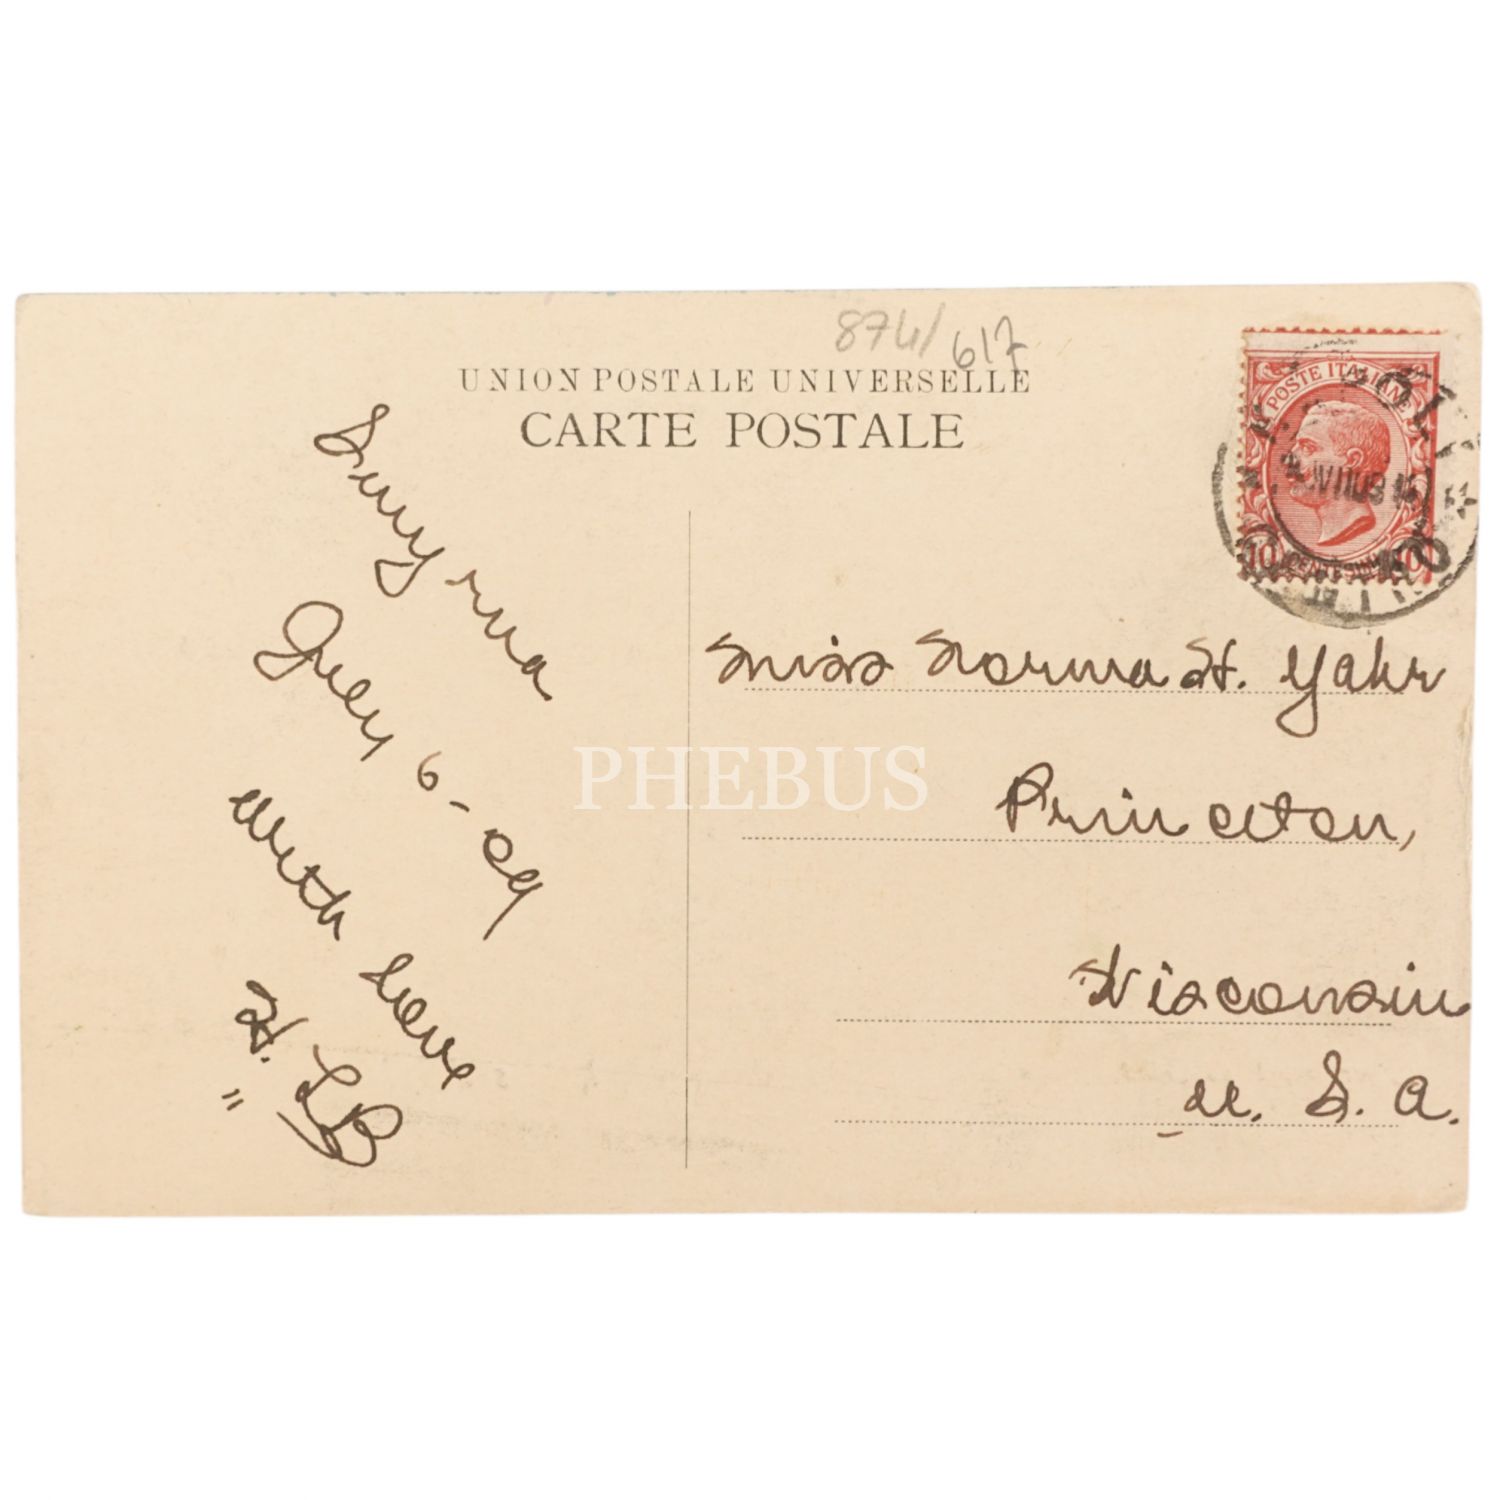 874/
617
UNION POSTALE UNIVERSELLE
CARTE POSTALE
POSTE ITALIANE
10 CENTESIMI 10
Smyrna
July 6-09
With love
H. LB
"
Miss Norma H. Yahr
Princeton,
Wisconsin
U. S. A.
PHEBUS